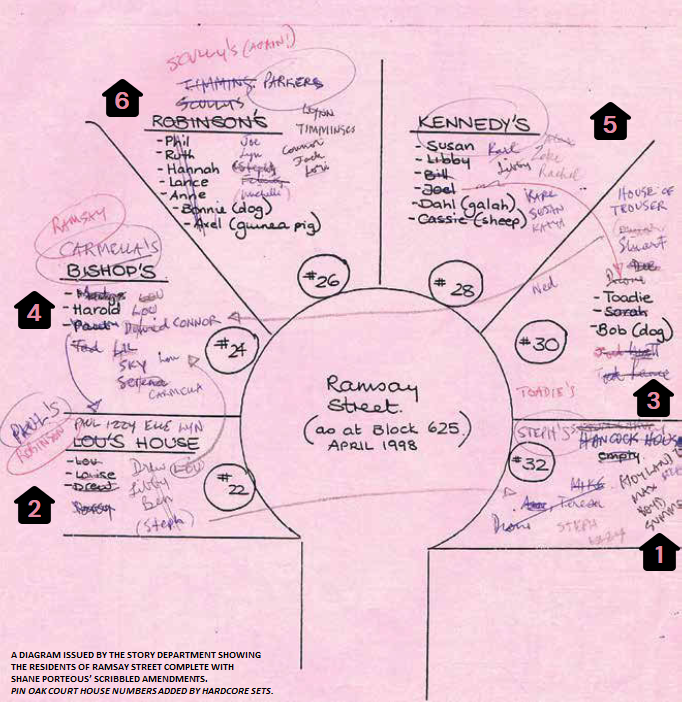 SCULLY'S (AGAIN!)
TIMMINS PARKERS
SCULLYS
6
ROBINSON'S
- Phil
- Ruth
- Hannah
- Lance
- Anne
- Bonnie (dog)
- Axel (guinea pig)
Joe
Lyn
(Steph)
Felicity
(Michelle)
LYNN
TIMMINSES
Connor
Jack
Lori
#26
KENNEDY'S
- Susan
- Libby
- Bill
- Joel
- Dahl (galah)
- Cassie (sheep)
Karl
Libby
Zeke
Rachel
KARL
SUSAN
KATYA
#28
5
HOUSE OF
TROUSER
Stuart
Dee
Dione
- Toadie
- Sarah
- Bob (dog)
Ned
#30
TOADIE'S
3
RAMSAY
CARMELLA'S
BISHOP'S
4
- Madge LOU
- Harold LOU
- Paul David CONNOR
Tad LIL
SKY Lou
Serena
CARMELLA
#24
PAUL'S
ROBINSON
PAUL IZZY ELLE LYN
LOU'S HOUSE
2
- Lou
- Louise
- Drew
Drew (LOU)
Libby
Ben
(Steph)
#22
Ramsay
Street.
(as at Block 625)
APRIL 1998
STEPH'S
HANCOCK HOUSE
empty
#32
MIKE
Teresa
Dione
STEPH
MOYLAND'S
MAX
BOYD
SUMMER
1
A DIAGRAM ISSUED BY THE STORY DEPARTMENT SHOWING
THE RESIDENTS OF RAMSAY STREET COMPLETE WITH
SHANE PORTEOUS' SCRIBBLED AMENDMENTS.
PIN OAK COURT HOUSE NUMBERS ADDED BY HARDCORE SETS.